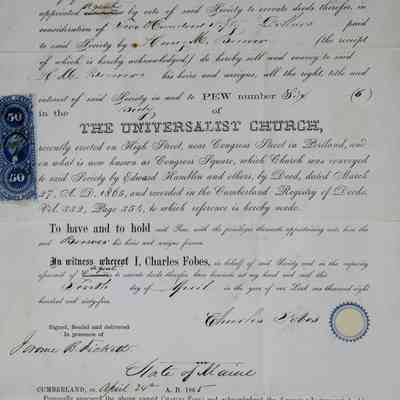 appointed agent by vote of said Society to execute deeds therefor, in
consideration of Two Hundred Fifty Dollars paid
to said Society by Henry M. Brewer (the receipt
of which is hereby acknowledged,) do hereby sell and convey to said
H. M. Brewer his heirs and assigns, all the right, title and
interest of said Society in and to PEW number Six (6)
in the Body of
THE UNIVERSALIST CHURCH,
recently erected on High Street, near Congress Street in Portland, and
on what is now known as Congress Square, which Church was conveyed
to said Society by Edward Hamblin and others, by Deed, dated March
27, A. D. 1865, and recorded in the Cumberland Registry of Deeds,
Vol. 332, Page 354, to which reference is hereby made.
50
50
To have and to hold said Pew, with the privileges thereunto appertaining unto him the
said Brewer his heirs and assigns forever.
In witness whereof I, Charles Fobes, in behalf of said Society and in the capacity
agent
to execute deeds therefor have hereunto set my hand and seal this
day of April in the year of our Lord one thousand eight
hundred and sixty-five.
Charles Fobes
Signed, Sealed and delivered
in presence of
Jerome B. Fickett
State of Maine
CUMBERLAND, ss. April 24th A. D. 1865
Personally appeared the above named Charles Fobes and acknowledged the